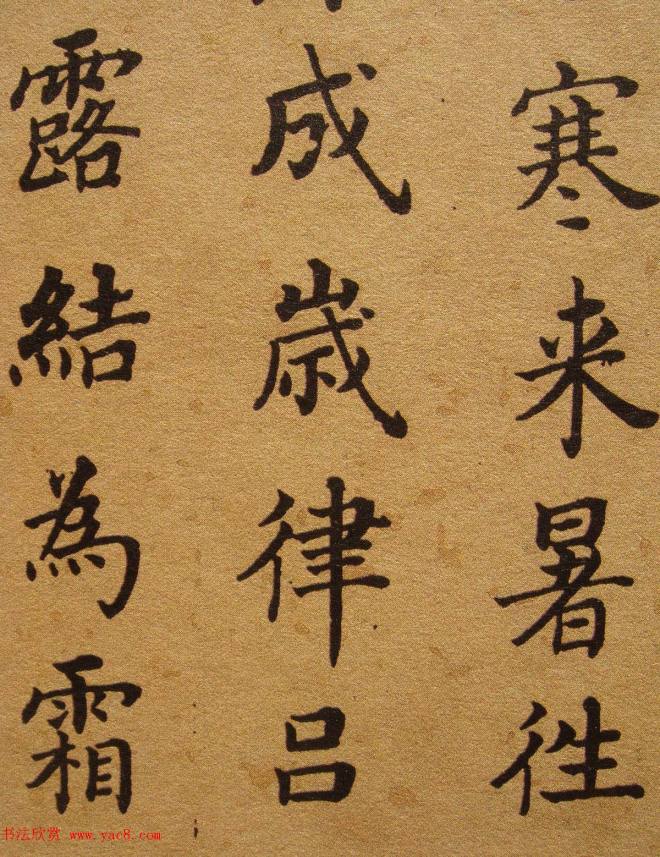 寒来暑往
成歲律吕
露結為霜
书法欣赏 www.yac8.com